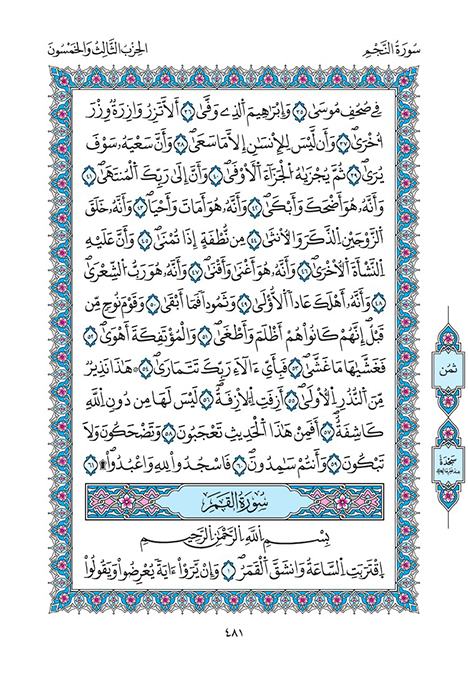 سُورَةُ النَّجْمِ
الحِزْبُ الثَّالِثُ وَالخَمْسُونَ
فِے صُحُفِ مُوسَىٰ ٣٥ وَإِبْرَٰهِيمَ اَ۬لذِے وَفَّىٰٓ ٣٦ أَلَّا تَزِرُ وَازِرَةٞ وِزْرَ
أُخْرَىٰ ٣٧ وَأَن لَّيْسَ لِلِانسَٰنِ إِلَّا مَا سَعَىٰ ٣٨ وَأَنَّ سَعْيَهُۥ سَوْفَ
يُرَىٰ ٣٩ ثُمَّ يُجْزَىٰهُ اُ۬لْجَزَآءَ اَ۬لَاوْفَىٰ ٤٠ وَأَنَّ إِلَىٰ رَبِّكَ اَ۬لْمُنتَهَىٰ ٤١
وَأَنَّهُۥ هُوَ أَضْحَكَ وَأَبْكَىٰ ٤٢ وَأَنَّهُۥ هُوَ أَمَاتَ وَأَحْيَا ٤٣ وَأَنَّهُۥ خَلَقَ
اَ۬لزَّوْجَيْنِ اِ۬لذَّكَرَ وَالُانث۪ىٰ ٤٤ مِن نُّطْفَةٍ إِذَا تُمْنَىٰ ٤٥ وَأَنَّ عَلَيْهِ
اِ۬لنَّشْأَةَ اَ۬لُاخْرَىٰ ٤٦ وَأَنَّهُۥ هُوَ أَغْنَىٰ وَأَقْنَىٰ ٤٧ وَأَنَّهُۥ هُوَ رَبُّ اُ۬لشِّعْرَىٰ
٤٨ وَأَنَّهُۥٓ أَهْلَكَ عَاداً اَ۬لُّاولَىٰ ٤٩ وَثَمُوداٗ فَمَآ أَبْقَىٰ ٥٠ وَقَوْمَ نُوحٖ مِّن
قَبْلُ إِنَّهُمْ كَانُواْ هُمُۥٓ أَظْلَمَ وَأَطْغَىٰ ٥١ وَالْمُوتَفِكَةَ أَهْوَىٰ ٥٢
فَغَشَّىٰهَا مَا غَشَّىٰ ٥٣ فَبِأَيِّ ءَالَآءِ رَبِّكَ تَتَمَارَىٰ ٥٤ هَٰذَا نَذِيرٞ
مِّنَ اَ۬لنُّذُرِ اِ۬لُاولَىٰٓ ٥٥ أَزِفَتِ اِ۬لَازِفَةُ ٥٦ لَيْسَ لَهَا مِن دُونِ اِ۬للَّهِ
كَاشِفَةٌ ٥٧ أَفَمِنْ هَٰذَا اَ۬لْحَدِيثِ تَعْجَبُونَ ٥٨ وَتَضْحَكُونَ وَلَا
تَبْكُونَ ٥٩ وَأَنتُمْ سَٰمِدُونَ ٦٠ فَاسْجُدُواْ لِلهِ وَاعْبُدُواْ ٦١
ثُمُن
سَجْدَة
سُورَةُ القَمَرِ
بِسْمِ اِ۬للَّهِ اِ۬لرَّحْمَٰنِ اِ۬لرَّحِيمِ
اِ۪قْتَرَبَتِ اِ۬لسَّاعَةُ وَانشَقَّ اَ۬لْقَمَرُ ١ وَإِنْ يَّرَوَاْ ءَايَةٗ يُعْرِضُواْ وَيَقُولُواْ
٤٨١